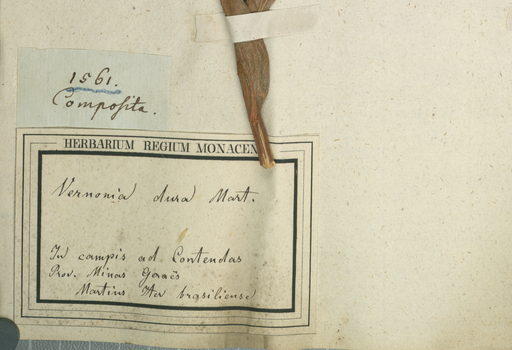 1561.
Composita.
HERBARIUM REGIUM MONACEN
Vernonia dura Mart.
In campis ad Contendas
Prov. Minas Geraës
Martius Iter brasiliense